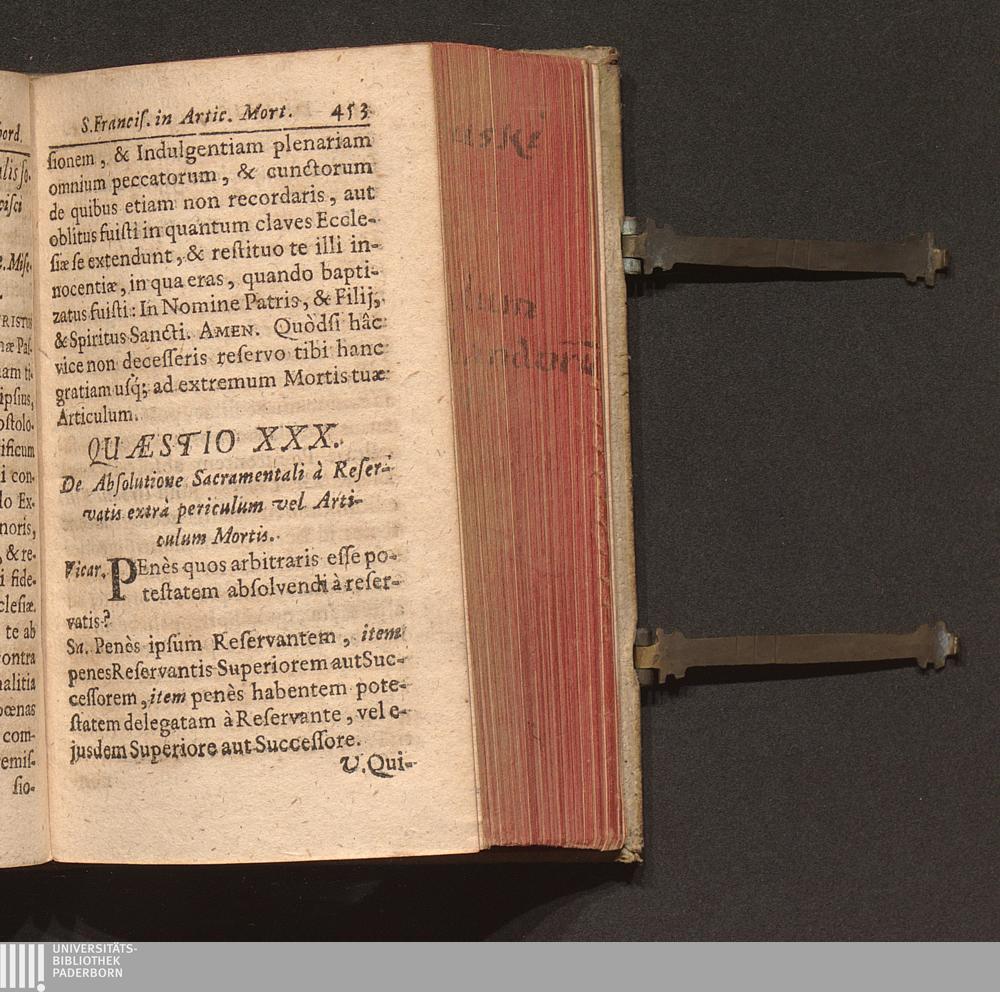 S. Franciſ. in Artic. Mort. 453
ſionem, & Indulgentiam plenariam
omnium peccatorum, & cunctorum
de quibus etiam non recordaris, aut
oblitus fuiſti in quantum claves Eccle-
ſiæ ſe extendunt, & reſtituo te illi in-
nocentiæ, in qua eras, quando bapti-
zatus fuiſti: In Nomine Patris, & Filij,
& Spiritus Sancti. AMEN. Quòdſi hâc
vice non deceſſeris reſervo tibi hanc
gratiam uſq; ad extremum Mortis tuæ
Articulum.
QUÆSTIO XXX.
De Abſolutione Sacramentali à Reſer-
vatis extrà periculum vel Arti-
culum Mortis.
Vicar. PEnès quos arbitraris eſſe po-
teſtatem abſolvendi à reſer-
vatis?
Sa. Penès ipſum Reſervantem, item
penes Reſervantis Superiorem aut Suc-
ceſſorem, item penès habentem pote-
ſtatem delegatam à Reſervante, vel e-
jusdem Superiore aut Succeſſore.
V. Qui-
UNIVERSITÄTS-
BIBLIOTHEK
PADERBORN